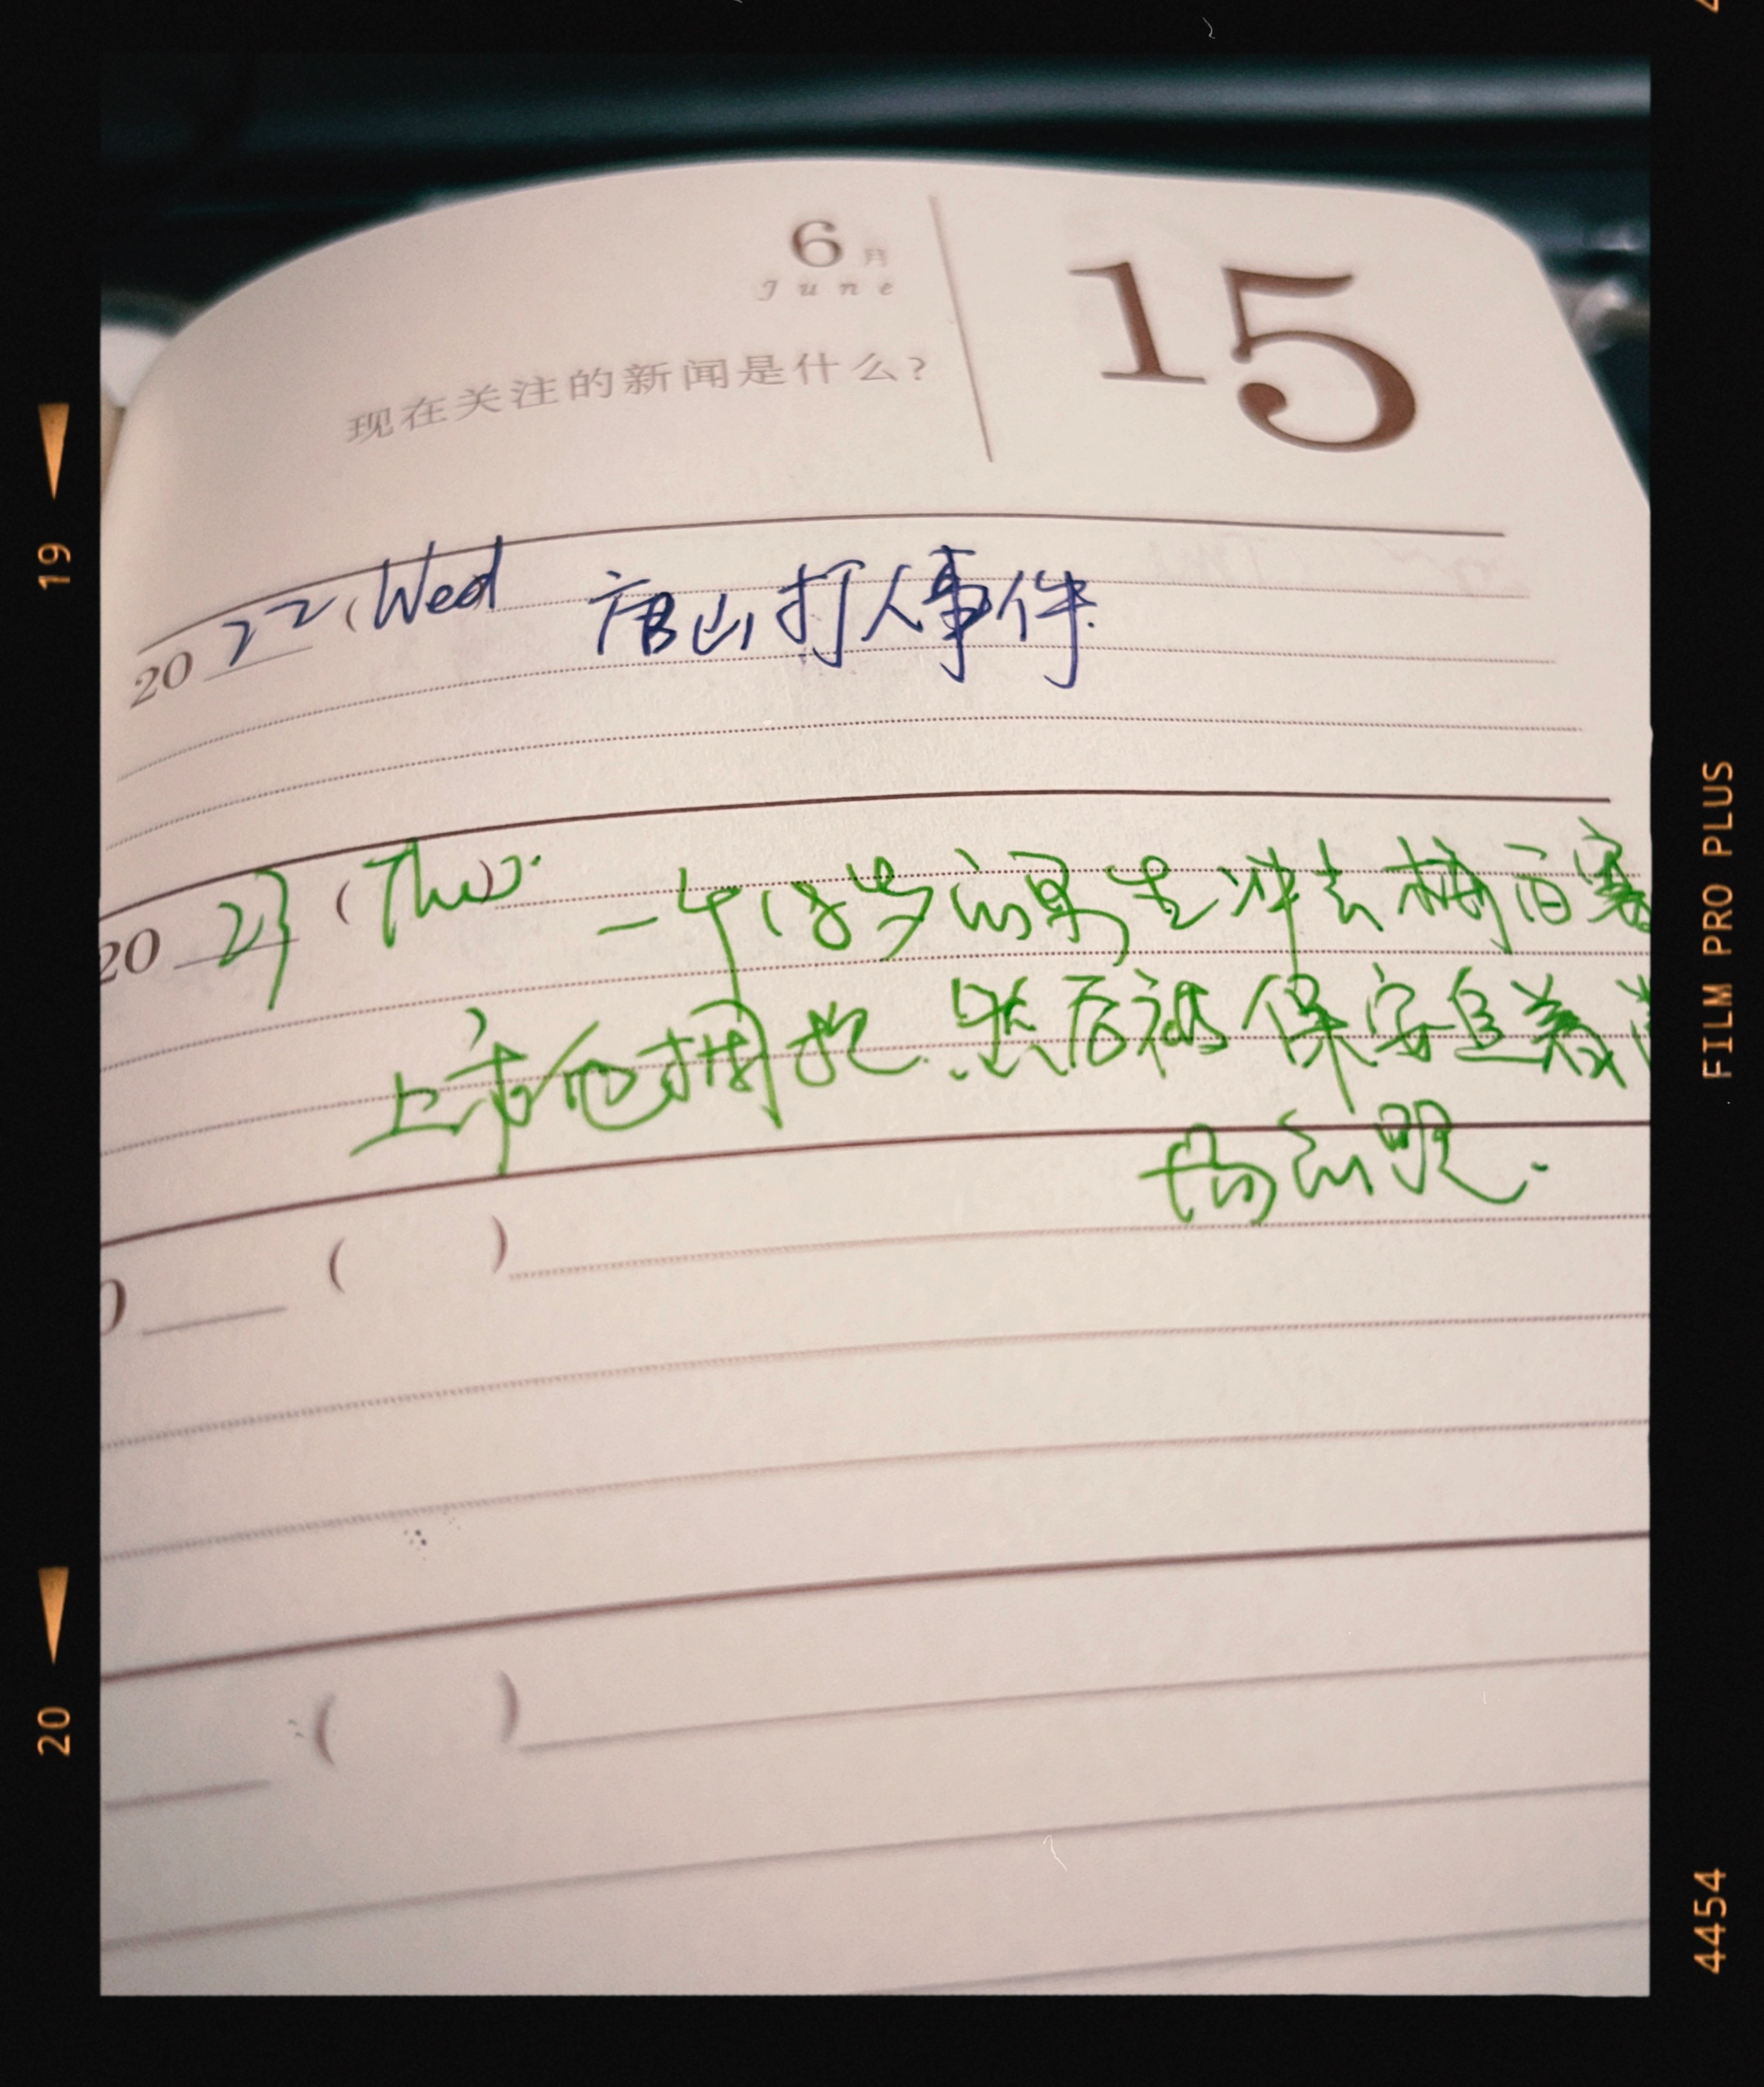 6月
June
15
现在关注的新闻是什么?
2022 (Wed 唐山打人事件.
2023 (Thu). 一个18岁的男生冲去梅西赛
上和他拥抱.然后被保安追着
场合照.
0 ( )
( )
19
20
FILM PRO PLUS
4454